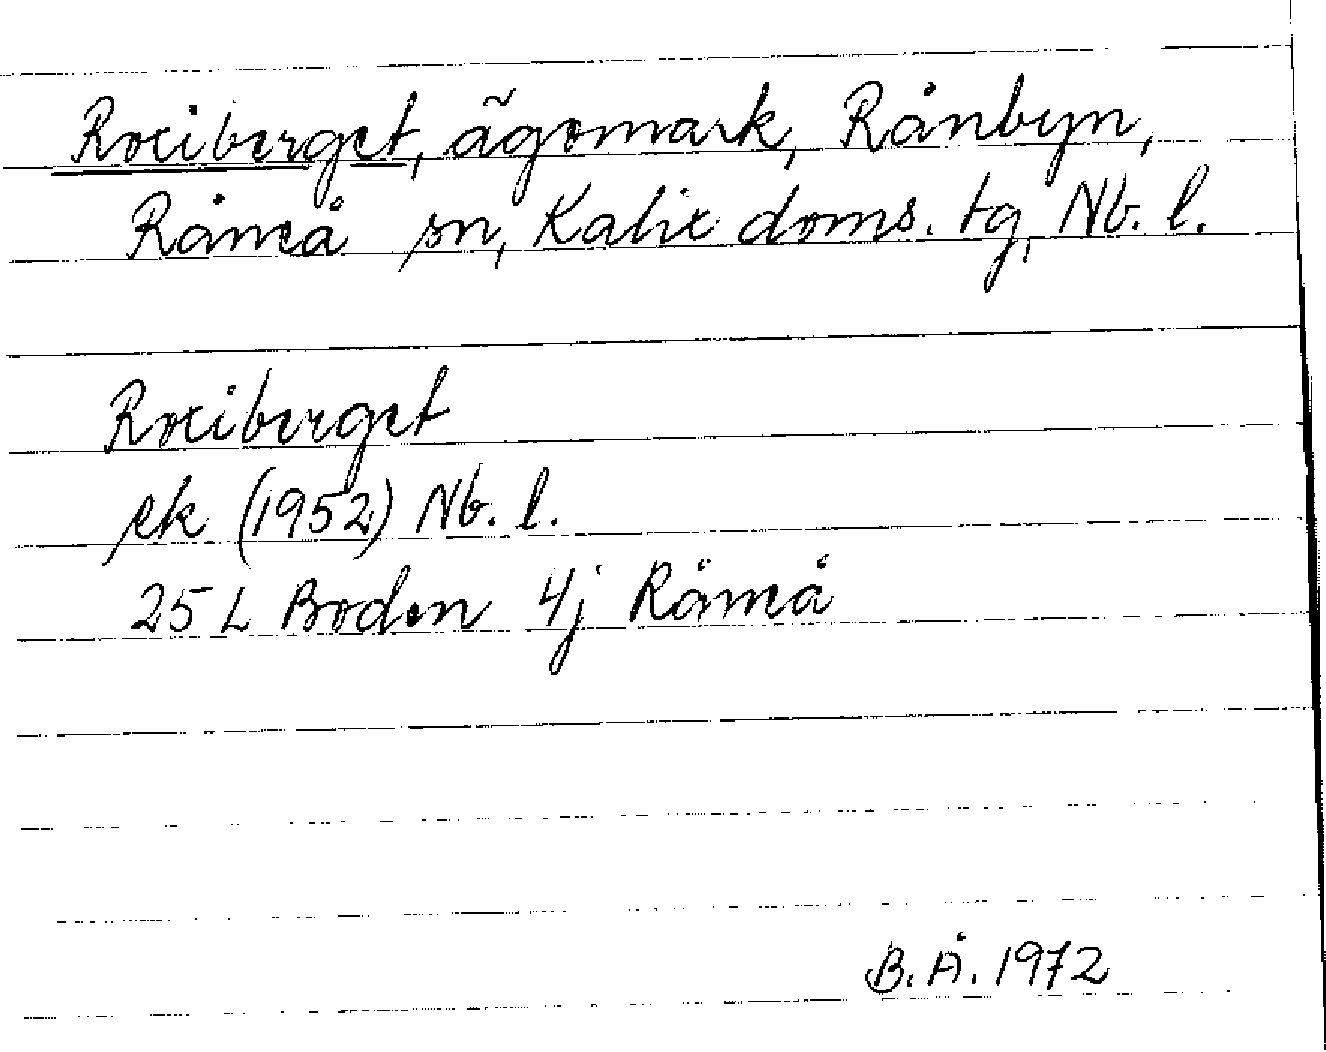 Roxiberget, ägomark, Rånbyn,
Råneå sn, Kalix doms. tg, Nb. l.
Roxiberget
ek (1952) Nb. l.
25 L Boden 4j Råneå
B.Å. 1972